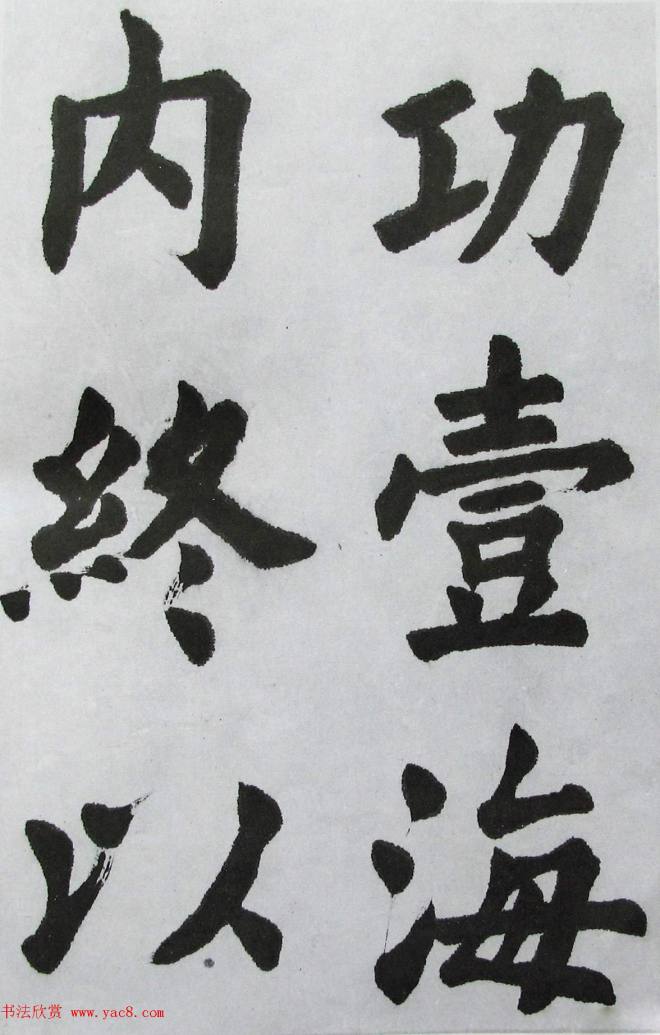 功壹海
内終以
书法欣赏 www.yac8.com